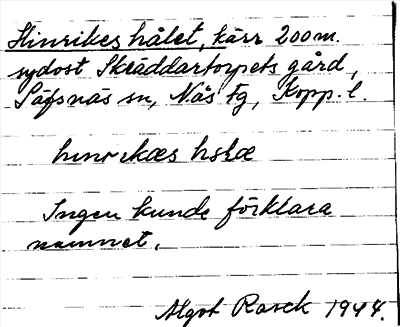 Hinrikes hålet, kärr 200 m.
sydost Skräddartorpets gård,
Säfsnäs sn, Nås tg, Kopp. l.
hinrikæs
Ingen kunde förklara
namnet.
Algot Rasck 1944.